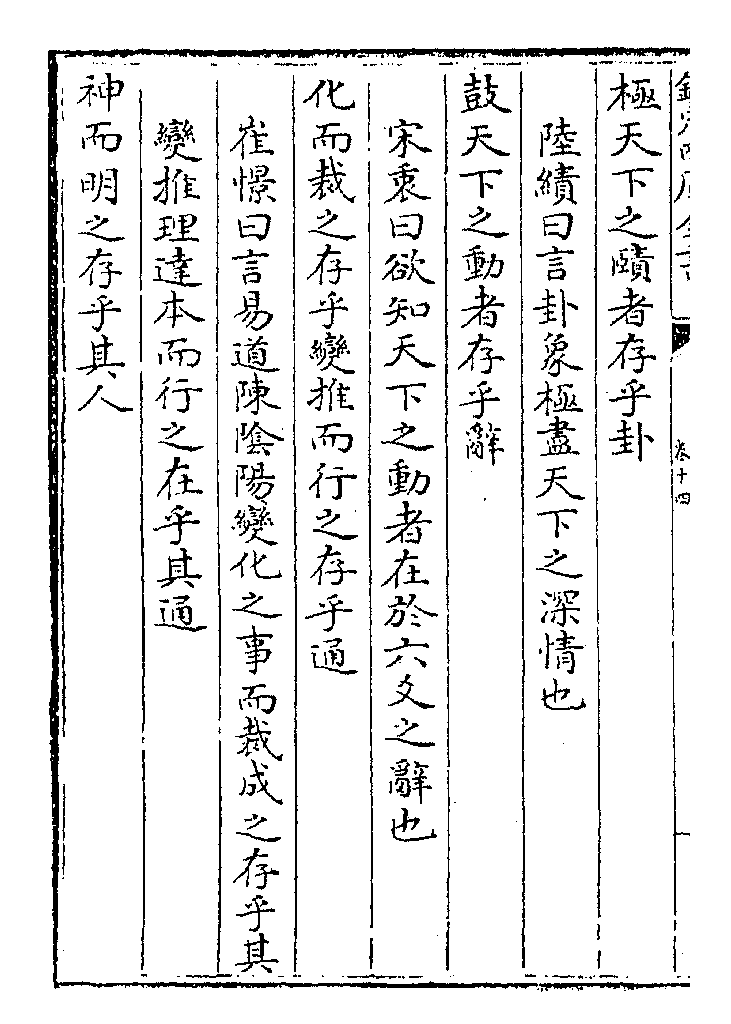 欽定四庫全書
卷十四
極天下之賾者存乎卦
陸績曰言卦象極盡天下之深情也
鼓天下之動者存乎辭
宋衷曰欲知天下之動者在於六爻之辭也
化而裁之存乎變推而行之存乎通
崔憬曰言易道陳陰陽變化之事而裁成之存乎其
變推理達本而行之在乎其通
神而明之存乎其人